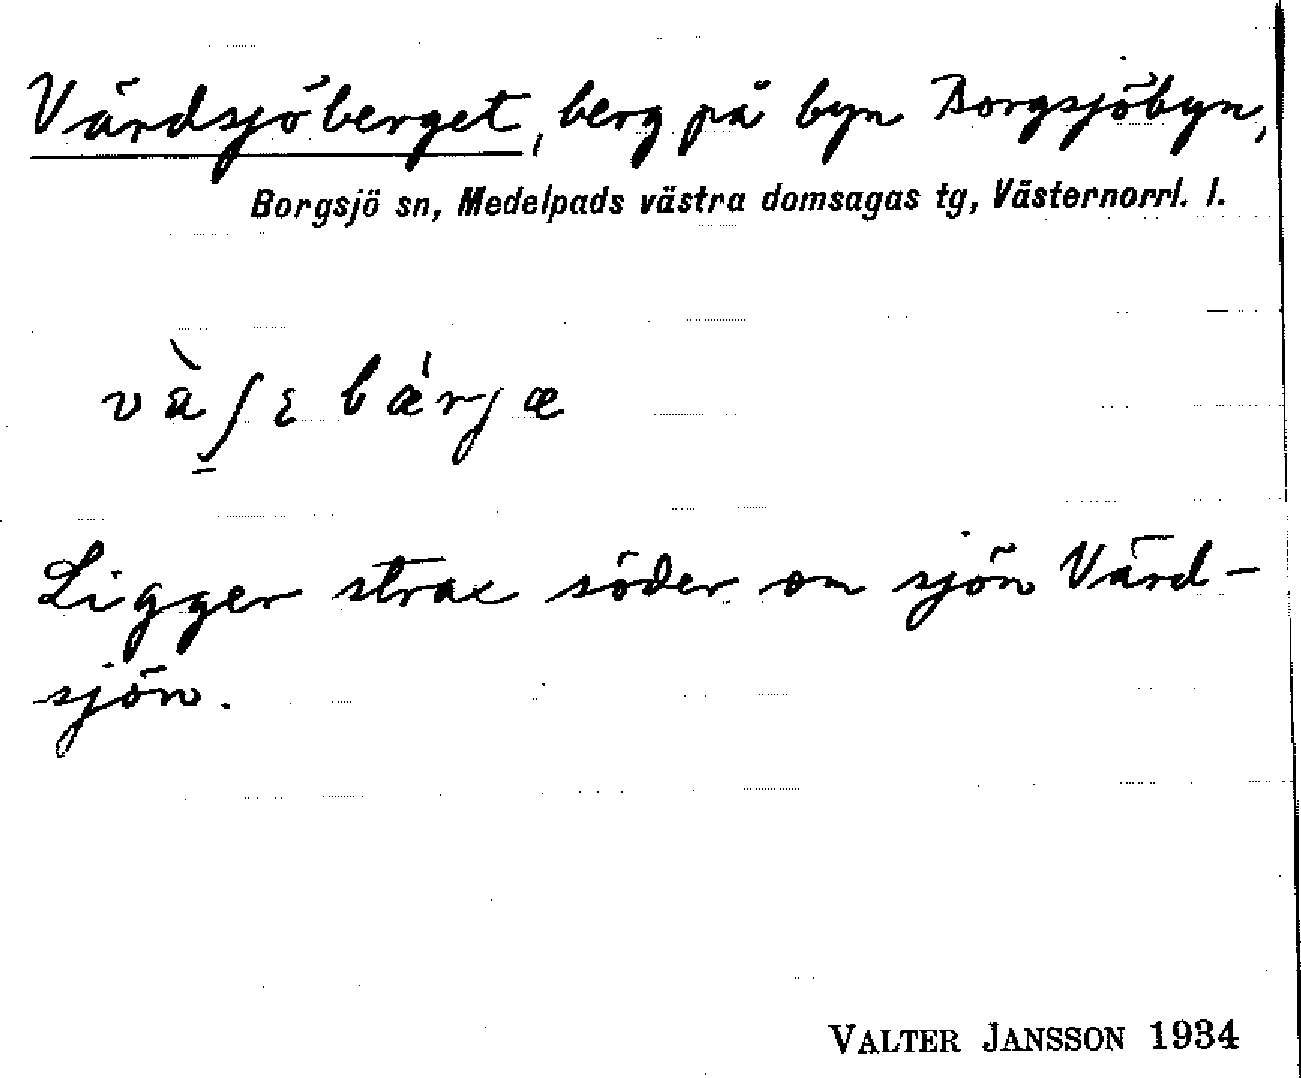 Värdsjöberget, berg på byn Borgsjöbyn,
Borgsjö sn, Medelpads västra domsagas tg, Västernorrl. l.
Ligger strax söder om sjön Värd-
sjön.
VALTER JANSSON 1934